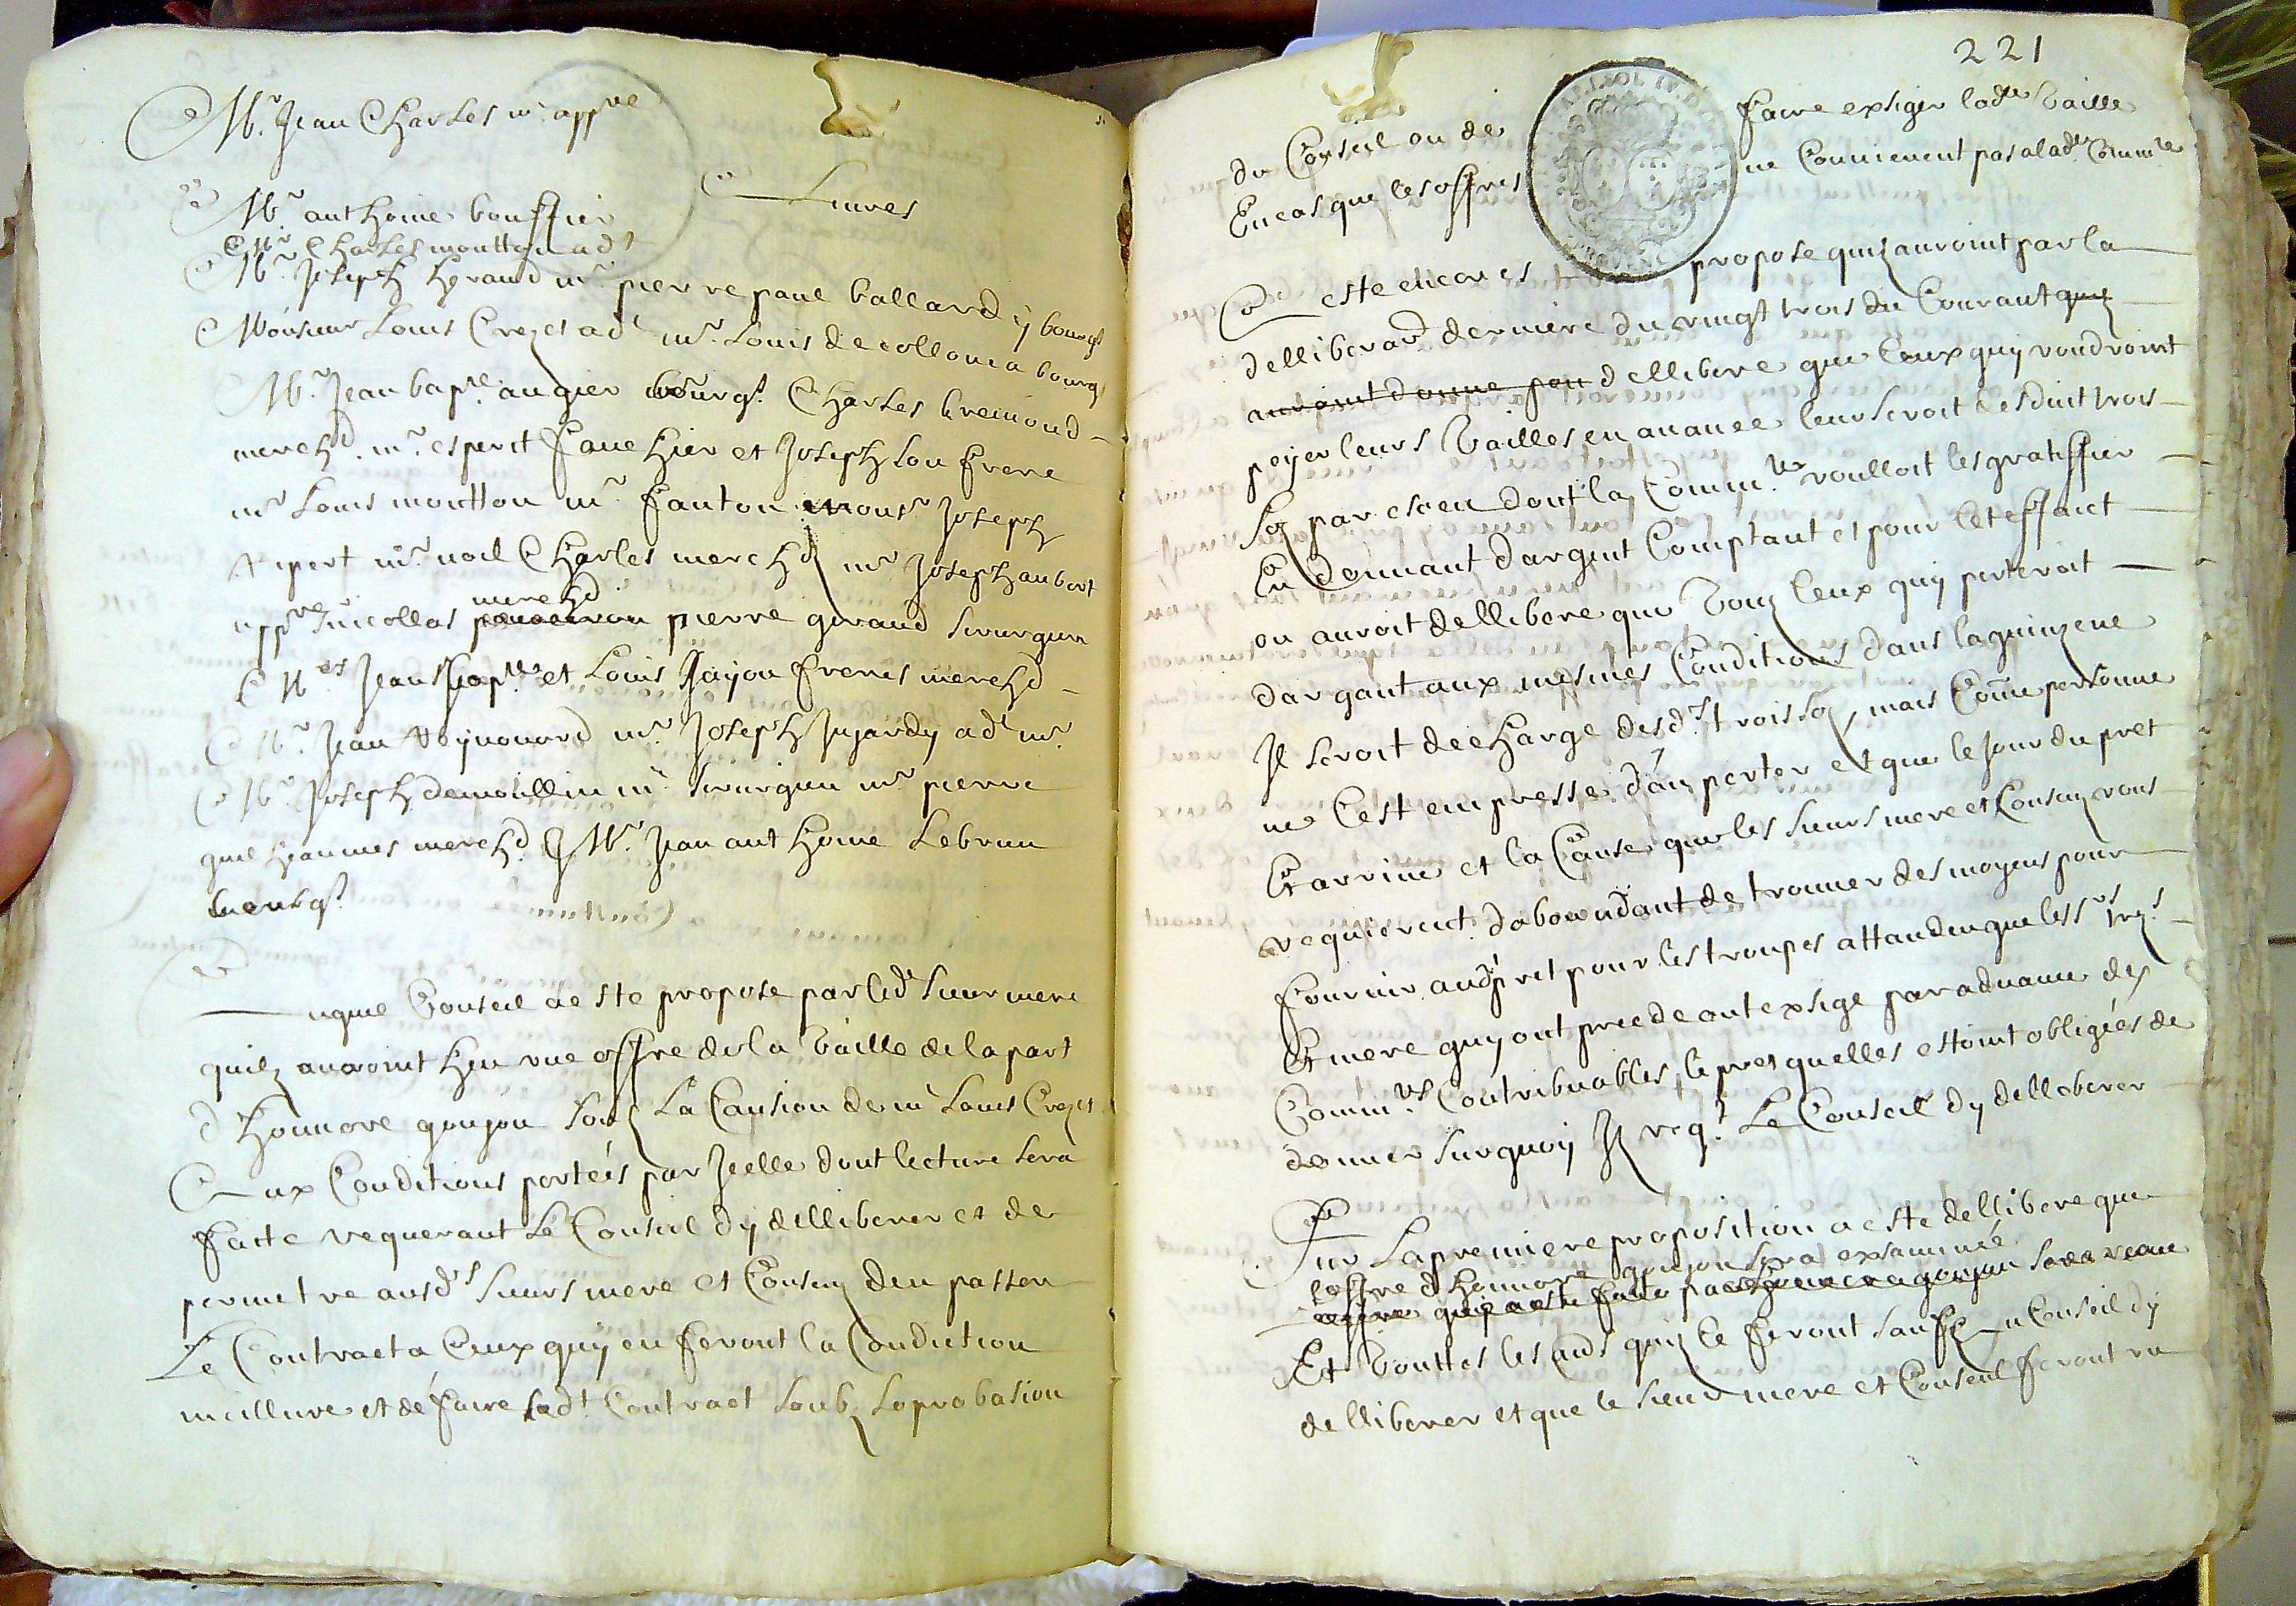 Mr. Jean Charles mr. appre
Luures
Mr. anthoine bouffier
Mr Charles moutton adt
Mr. Joseph heraud mr pierre paul ballard ÿ bourgs
Monsieur Louis Crozet adt mr. Louis de collonia bourgs
Mr. Jean bapte. augier bourgs. Charles bremond
merchd. mr. esperit fauchier et Joseph son frere
mr Louis moutton mr. fanton mousr Joseph
mr. noel Charles merchd mr Joseph aubert
merchd
appre nicollas pierre giraud sirurgien
Mes Jean bapte. et Louis Jujou freres merchd
Mr. Jean Reynouard mr. Joseph Jujardy adt mr.
Mr. Joseph demoullin mr sirurgien mr pierre
guilheaumes merchd & Mr. Jean anthoine Lebrun
bourgs.
uquel Conseil a este propose par ledt sieur mere
quilz auroint heu une offre de la Taille de la part
d honnore goujon soubz La Caution de mr Louis Crozet
aux Conditions portées par Icelle dont lecture sera
faite requerant Le Conseil dy delliberer et de
permettre ausdts sieurs mere et Consulz den passer
Le Contract a Ceux quÿ en feront la Condition
meilleure et de faire ledt Contract soubz Laprobasion
221
du Conseil ou de faire exsiger lade Taille
En cas que les offres ne Conuienent pas a lade Commte
este encores propose quilz auroint par la
delliberaon derniere du vingt trois du Courant quy
auroint donne pou dellibere que Ceux quy voudroint
peyer leurs Tailles en auance leur seroit desduit trois
solz par escu dont la Commte voulloit les gratiffier
En donnant dargent Comptant et pour Cet effaict
on auroit dellibere que Touz Ceux quÿ porteroit
dargant aux mesmes Conditions dans la quinzene
Il seroit decharge desdts trois solz, mais Come personne
ne Cest empresse dan porter et que le Jour du pret
Est arrive et la Cause que les sieurs mere et Consulz vous
requierent dabondant de trouuer des moyens pour
fournir audt pret pour les troupes attandeu que les srs trezs
Et mere quy ont precede ont exsige par aduance des
Commtes Contribuables le pret quelles estoint obligées de
donner surquoy Ilz reqt. Le Conseil dy delliberer
Sur La premiere proposition a este dellibere que
loffre d honnore goujon sera exsaminée
offre quy a este faite par honnore goujon sera reçue
Et Touttes les auds quis le feront sauf Un Conseil dÿ
delliberer et que le sieur mere et Conseul feront vn